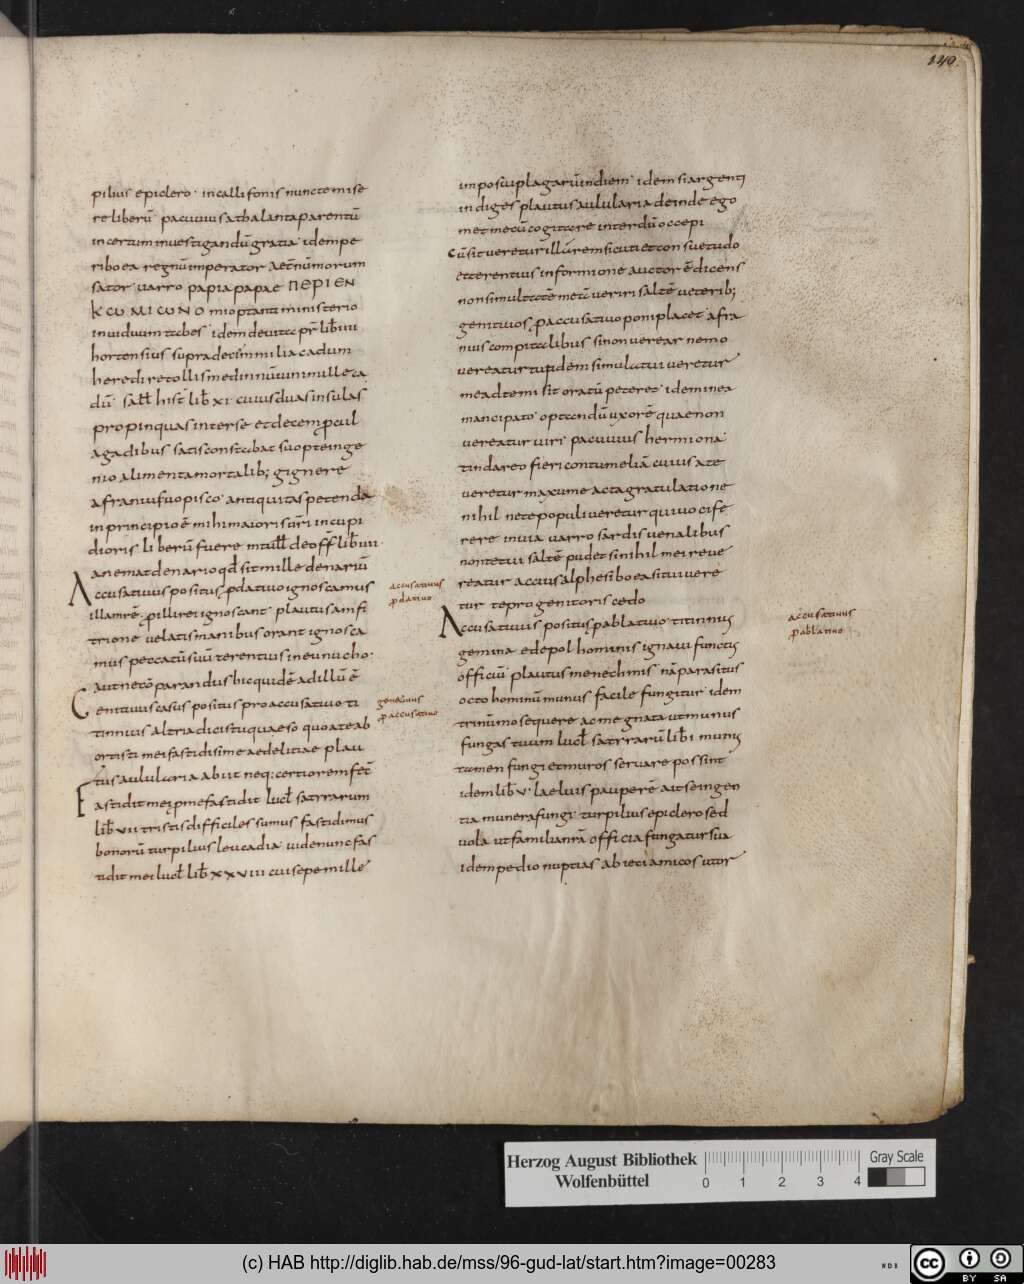 140.
pilius epiclero · in callifonis nunctemise
re liberū · pacuuius athalanta parentū
incertum inuestigandū gratia · idem pe
riboea regnū imperator aet̄nūmorum
sator · uarro papiapapae ΠΕΡΙΕΝ
ΚСѠΜΙСѠΝΟ mioptanti ministerio
inuiduum tabes · idem deuita pr̄ lib̄ uii
hortensius supra decim milia cadum
heredi reto llis medinnūum mille ca
dū · sall̄ hist̄ lib̄ xi · cuius duas insulas
propinquas interse et decem ꝓcul
agadibus satis constabat suopte inge
nio alimenta mortalib; gignere
afranius uopisco · antiquitas petenda
in principio ē mihi maioris uri incupi
dioris liberū fuere m tull̄ de off̄ lib̄ iii
an emat denario qd̄ sit mille denariū
Accusatiuus positus ꝓ datiuo ignoscamus
illam rē ꝓ illi rei ignoscant · plautus amfi
trione uelatis manibus orant ignosca
mus peccatū suū terentius in eunucho ·
aut neto parandus hic quidē ad illū ē
Genitiuus casus positus pro accusatiuo ti
tinnius altria dicistuquaeso quo ateab
ortisti mei fastidisime ae delitiae plau
tus aulularia abiit neq; certiorem fec̄
Fastidit mei ꝓ me fastidit lucil̄ satrrarum
lib̄ uii tristis difficiles sumus fastidimus
bonorū turpilius leucadia uide nunc fas
tidit mei lucil̄ lib̄ xxuiii cui sepe mille
accusatiuus
ꝓ datiuo
genitiuus
ꝓ accusatiuo
inposuplagarū indiem · idem si argenti
indiges plautus aulularia deinde ego
met mecū cogitare interdū occepi
cū sit ueretur illū rem sicuti et consuetudo
et terentius in formione auctor ē dicens
non simul tote metū ueriri saltē ueterib;
genitiuos ꝓ accusatiuo poni placet afra
nius compitalibus si non uerear nemo
uereatur tu idem simulatui ueretur
mead temi sit oratū peteret · idem inea
mancipato · optandū uxorē quae non
uereatur uiri · pacuuius hermiona
tindareo fieri contumeliā cuius ate
ueretur maxume acta gratulatione
nihil nete populi ueretur qui uocife
rere inuia uarro sardis uenalibus
non te tui saltē pudet si nihil mei reue
reatur accius alphesiboea si tui uere
tur te pro genitoris cedo
Accusatiuus positus ꝓ ablatiuo titinnius
gemina edepol hominis ignaui functus
officiū plautus menechmis nā parasitus
octo hominū munus facile fungitur idem
trinūmo sequere ac me gnata ut munus
fungas tuum lucil̄ satrrarū lib̄ i munus
tamen fungi et muros seruare possint
idem lib̄ u laeluis pauperē ait se ingen
tia munera fungi turpilius epiclero sed
uola ut familiam rā officia fungatur sua
idem pedio nuptias abieci amicos utor
accusatiuus
ꝓ ablatiuo
Herzog August Bibliothek
Wolfenbüttel
0 1 2 3 4
Gray Scale
(c) HAB http://diglib.hab.de/mss/96-gud-lat/start.htm?image=00283
WDB
cc BY SA